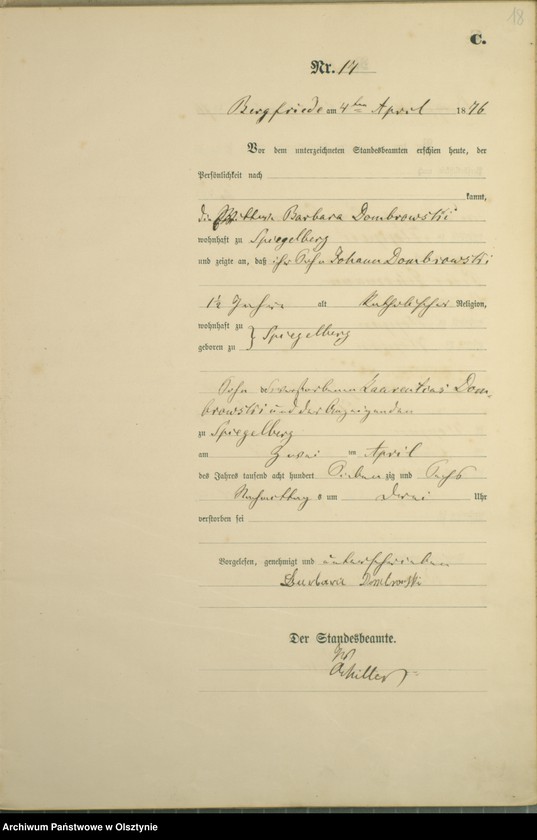 18
C.
Nr. 14
Bergfriede am 4ten April 1876
Vor dem unterzeichneten Standesbeamten erschien heute, der
Persönlichkeit nach
kannt,
die Wittwe Barbara Dombrowski
wohnhaft zu Spiegelberg
und zeigte an, daß ihr Sohn Johann Dombrowski
1½ Jahre alt Katholischer Religion,
wohnhaft zu
Spiegelberg
geboren zu
Sohn des verstorbenen Laurentius Dom-
browski und der Anzeigenden
zu Spiegelberg
am Zwei ten April
des Jahres tausend acht hundert Sieben zig und Sechs
Nachmittag s um Drei Uhr
verstorben sei
Vorgelesen, genehmigt und unterschrieben
Barbara Dombrowski
Der Standesbeamte.
Archiwum Państwowe w Olsztynie